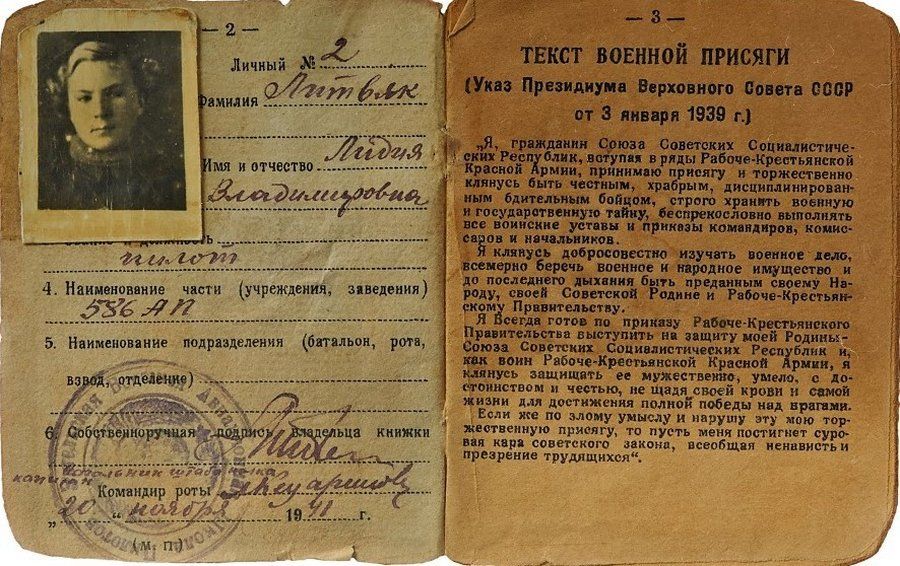 — 2 —
Личный № 2
Фамилия Литвяк
Имя и отчество Лидия
Владимировна
пилот
4. Наименование части (учреждения, заведения)
586 АП
5. Наименование подразделения (батальон, рота,
взвод, отделение)
6. Собственноручная подпись владельца книжки
капитан начальник штаба полка
Командир роты
„20 “ ноября 1941 г.
(М. П.)
— 3 —
ТЕКСТ ВОЕННОЙ ПРИСЯГИ
(Указ Президиума Верховного Совета СССР
от 3 января 1939 г.)
„Я, гражданин Союза Советских Социалистиче-
ских Республик, вступая в ряды Рабоче-Крестьянской
Красной Армии, принимаю присягу и торжественно
клянусь быть честным, храбрым, дисциплинирован-
ным бдительным бойцом, строго хранить военную
и государственную тайну, беспрекословно выполнять
все воинские уставы и приказы командиров, комис-
саров и начальников.
Я клянусь добросовестно изучать военное дело,
всемерно беречь военное и народное имущество и
до последнего дыхания быть преданным своему На-
роду, своей Советской Родине и Рабоче-Крестьян-
скому Правительству.
Я Всегда готов по приказу Рабоче-Крестьянского
Правительства выступить на защиту моей Родины-
Союза Советских Социалистических Республик и,
как воин Рабоче-Крестьянской Красной Армии, я
клянусь защищать ее мужественно, умело, с до-
стоинством и честью, не щадя своей крови и самой
жизни для достижения полной победы над врагами.
Если же по злому умыслу я нарушу эту мою тор-
жественную присягу, то пусть меня постигнет суро-
вая кара советского закона, всеобщая ненависть и
презрение трудящихся“.